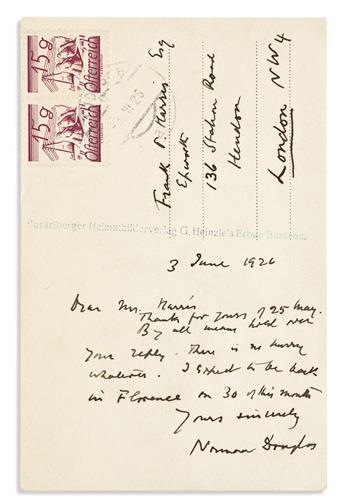 15g
Österreich
15g
Österreich
Frank Harris Esq
Epworth
136 Station Road
Hendon
London NW4
Vorarlberger Heimatbilderverlag G. Heinzle's Erben Bludenz.
3 June 1926
Dear Mr. Harris
Thanks for yours of 25 May.
By all means hold over
your reply. There is no hurry
whatever. I expect to be back
in Florence on 30 of this month
Yours sincerely
Norman Douglas